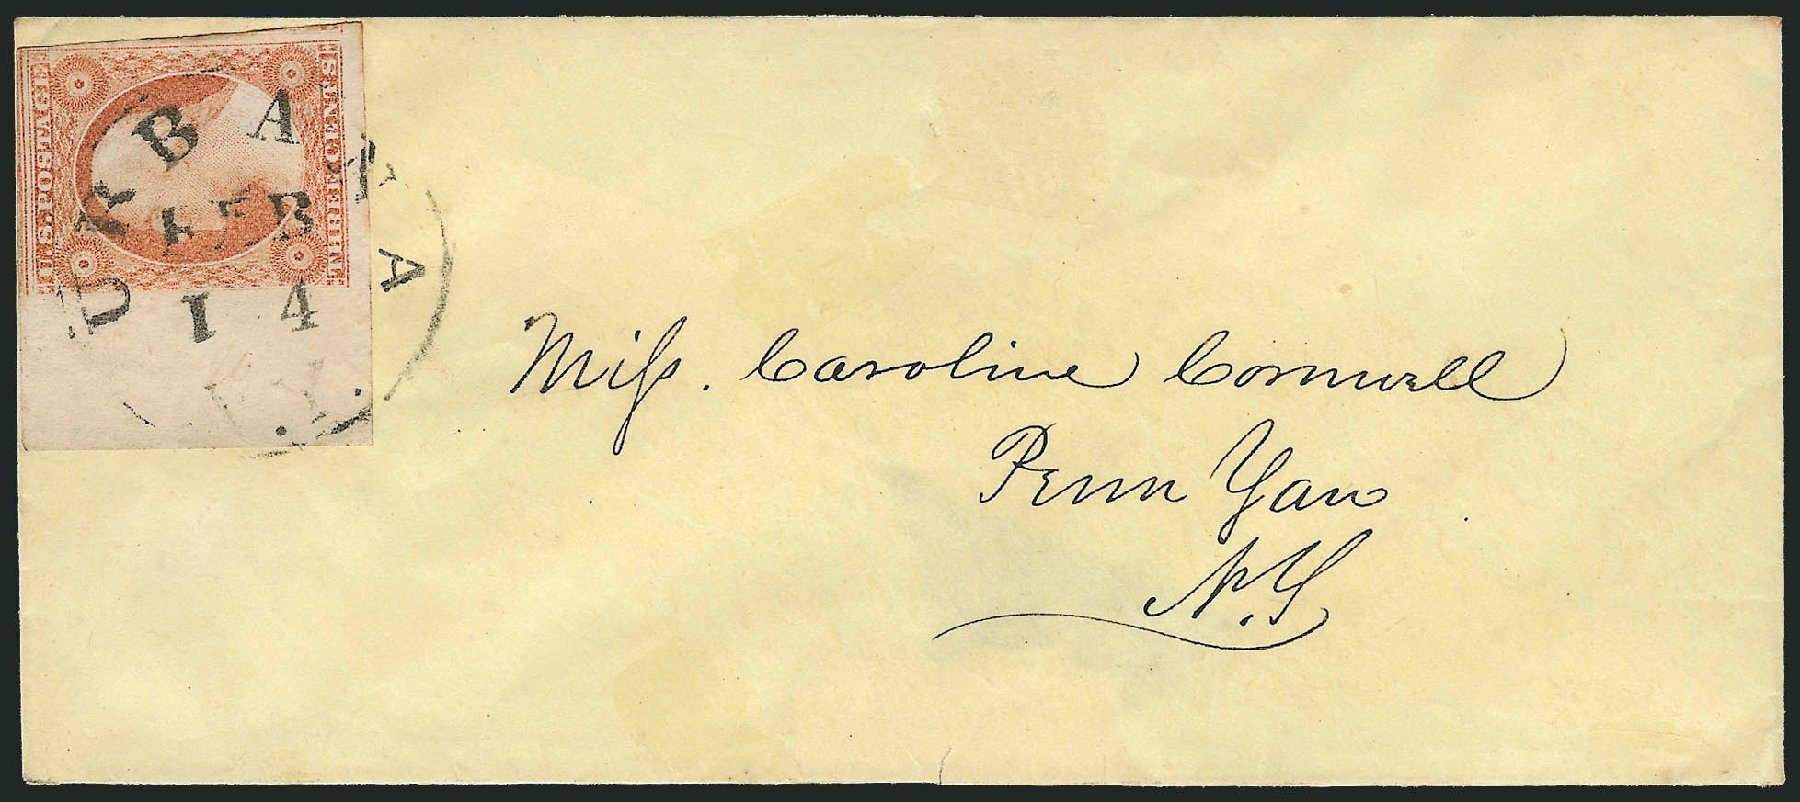 U.S. POSTAGE
THREE CENTS
URBANA
FEB
14
N.Y.
Miss. Caroline Cornwell
Penn Yan
N.Y